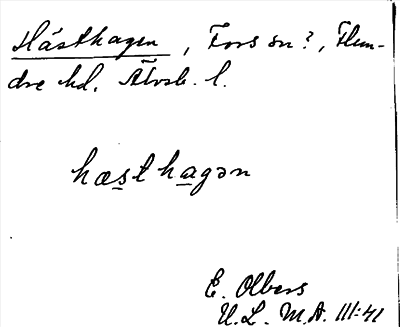 Hästhagen, Fors sn?, Flun-
dre hd. Älvsb. l.
hæsthagən
E. Olbers
U.L.M.A. III:41